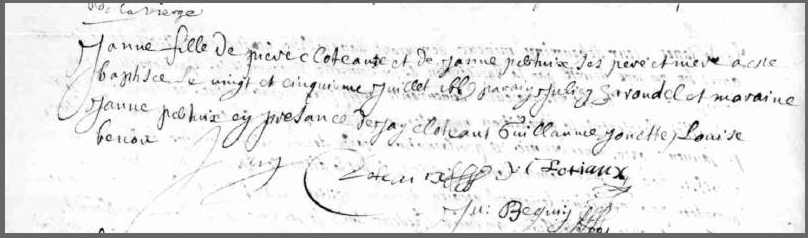 de la vierge
Janne fille de pierre Cloteaux et de Janne pelhuix ses pere et mere a este
baptisee le vingt et cinquieme Juillet parain Julien et maraine
Janne pelhuix en presance de Jan Cloteaux Guillaume Jouette, Louise
benoix
J Clotiaux
Ju: Beguin